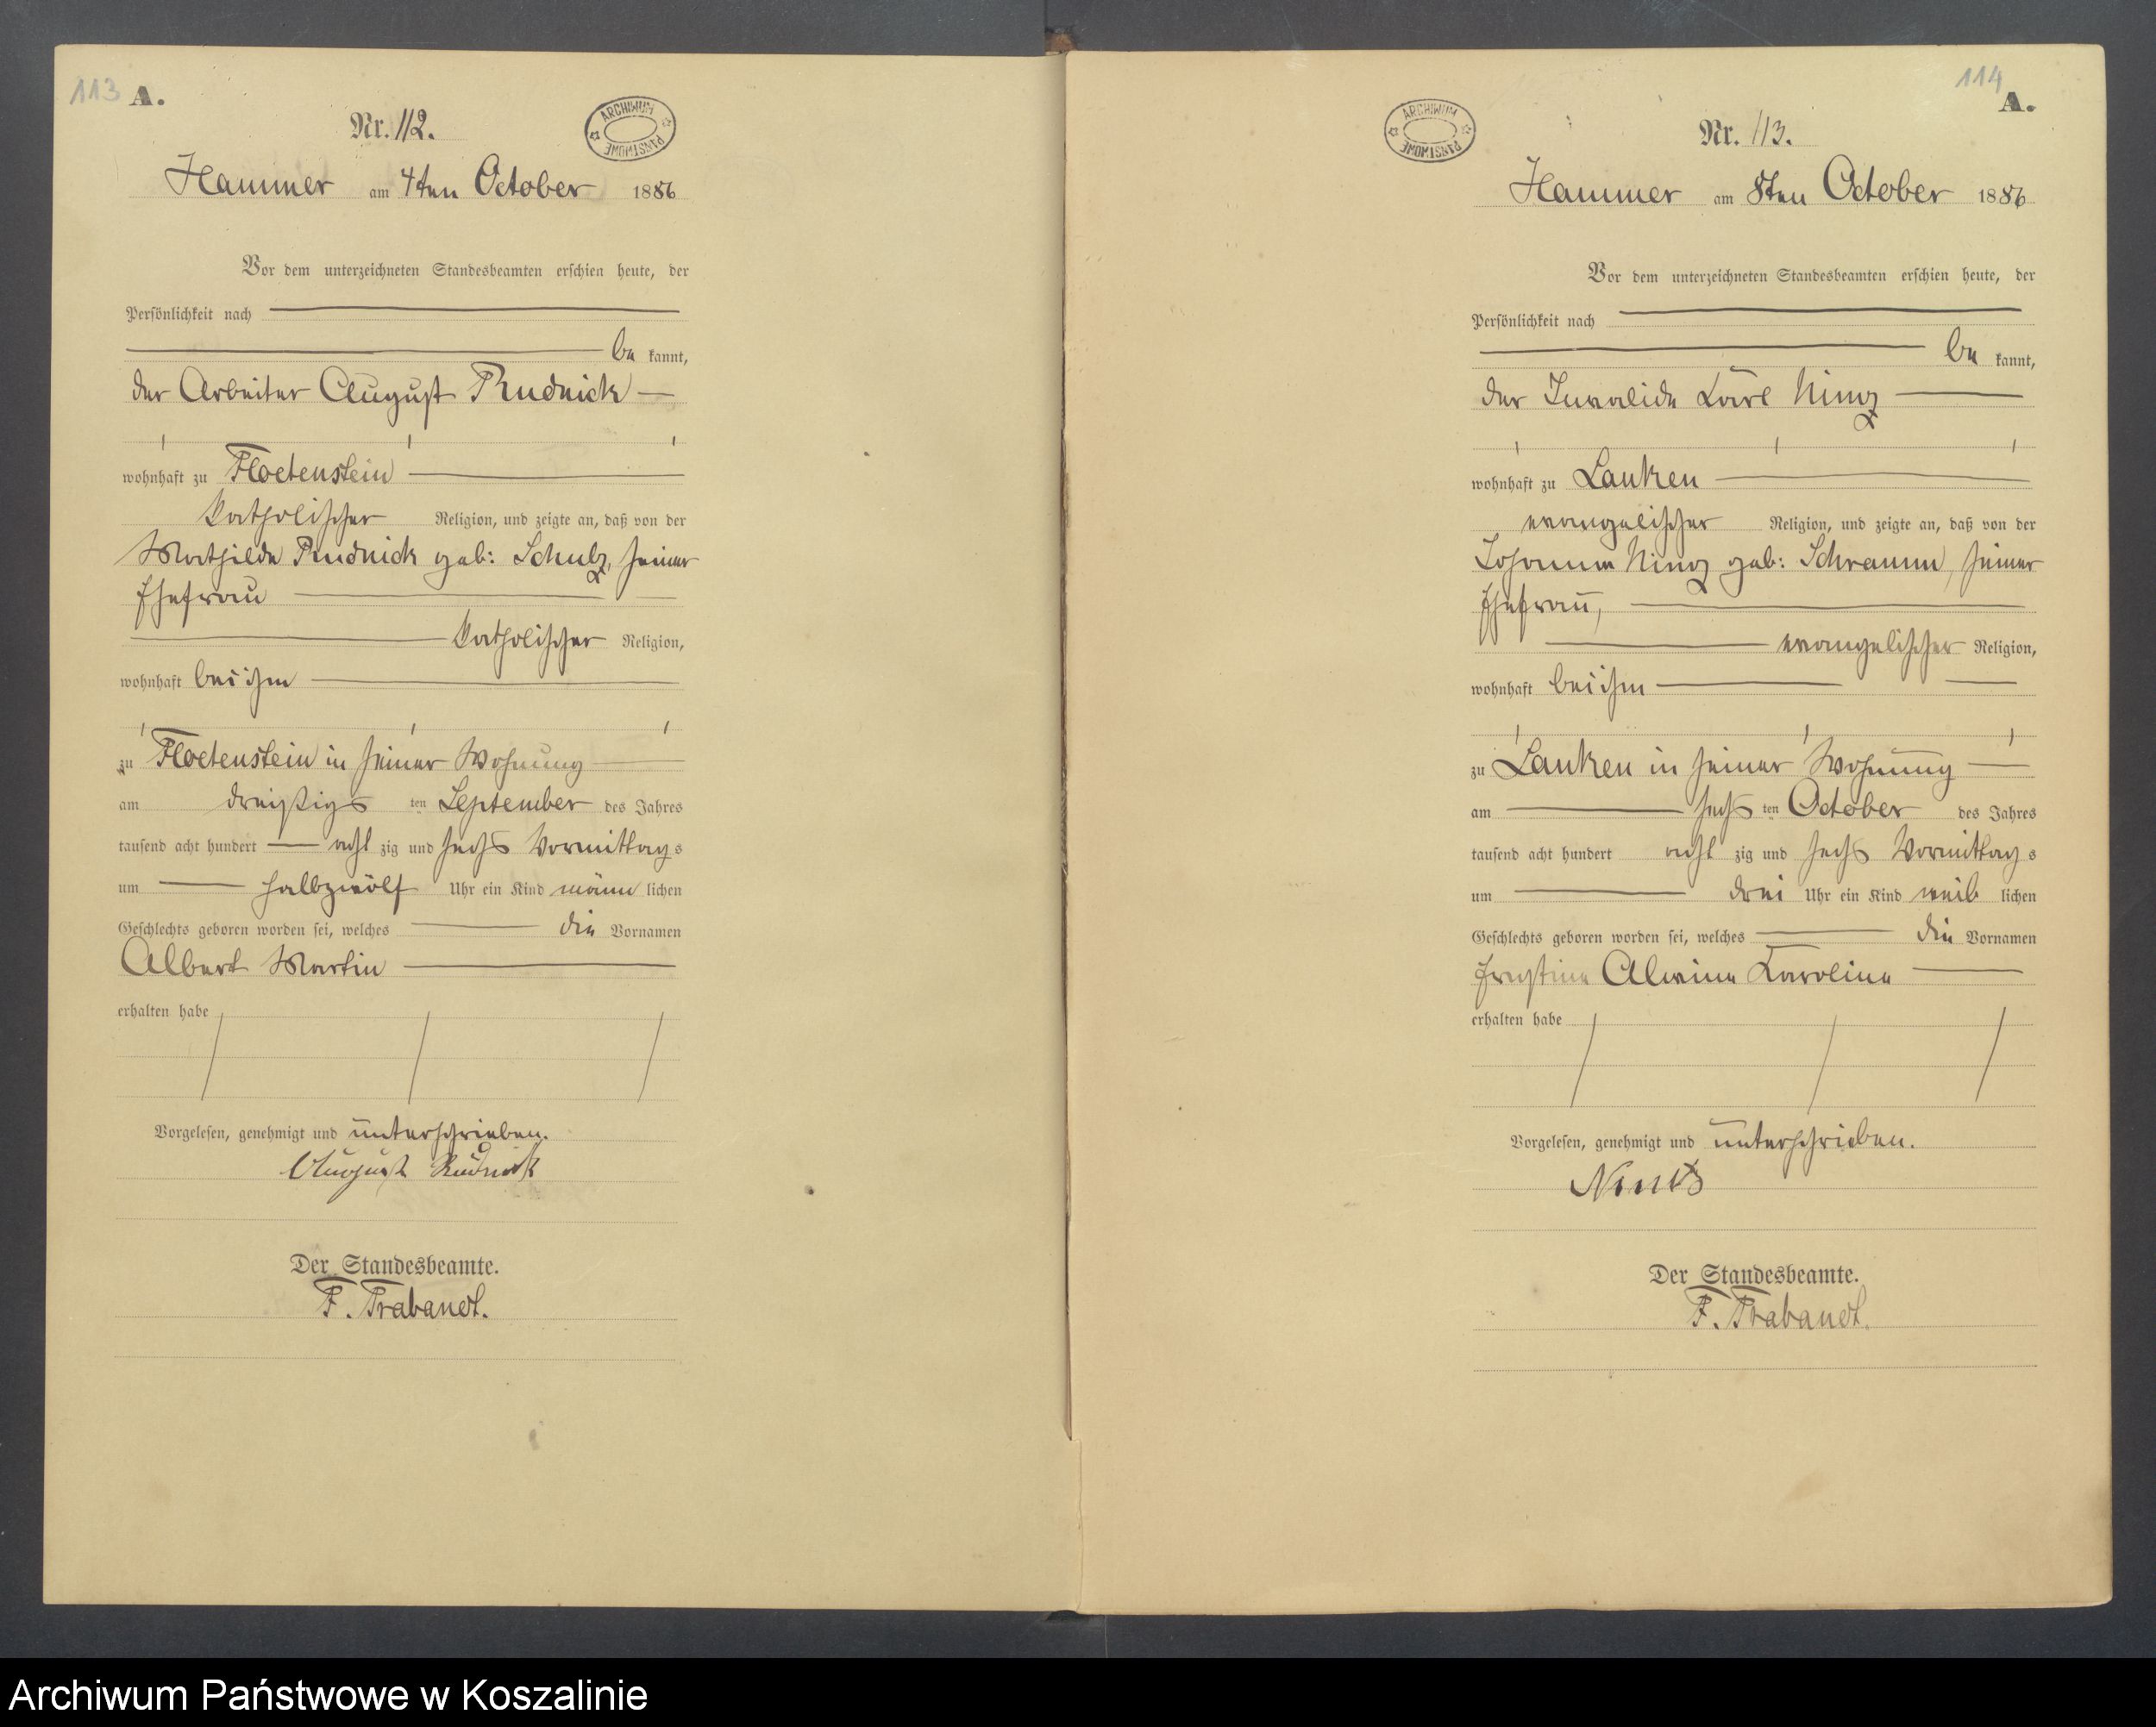 113 A.
Nr. 112.
ARCHIWUM PAŃSTWOWE
Hammer am 4ten October 1886
Vor dem unterzeichneten Standesbeamten erschien heute, der
Persönlichkeit nach
be kannt,
der Arbeiter August Rudnick
wohnhaft zu Floetenstein
katholischer Religion, und zeigte an, daß von der
Mathilde Rudnick geb: Schulz, seiner
Ehefrau
katholischer Religion,
wohnhaft bei ihm
zu Floetenstein in seiner Wohnung
am dreißigs ten September des Jahres
tausend acht hundert acht zig und sechs Vormittags
um halbzwölf Uhr ein Kind männ lichen
Geschlechts geboren worden sei, welches die Vornamen
Albert Martin
erhalten habe
Vorgelesen, genehmigt und unterschrieben.
August Rudnick
Der Standesbeamte.
F. Trabandt.
114
A.
Nr. 113.
ARCHIWUM PAŃSTWOWE
Hammer am 8ten October 1886
Vor dem unterzeichneten Standesbeamten erschien heute, der
Persönlichkeit nach
be kannt,
der Invalide Karl Nimz
wohnhaft zu Lanken
evangelischer Religion, und zeigte an, daß von der
Johanna Nimz geb: Schramm, seiner
Ehefrau,
evangelischer Religion,
wohnhaft bei ihm
zu Lanken in seiner Wohnung
am sechs ten October des Jahres
tausend acht hundert acht zig und sechs Vormittags
um drei Uhr ein Kind weib lichen
Geschlechts geboren worden sei, welches die Vornamen
Alwine Karoline
erhalten habe
Vorgelesen, genehmigt und unterschrieben.
Der Standesbeamte.
F. Trabandt.
Archiwum Państwowe w Koszalinie